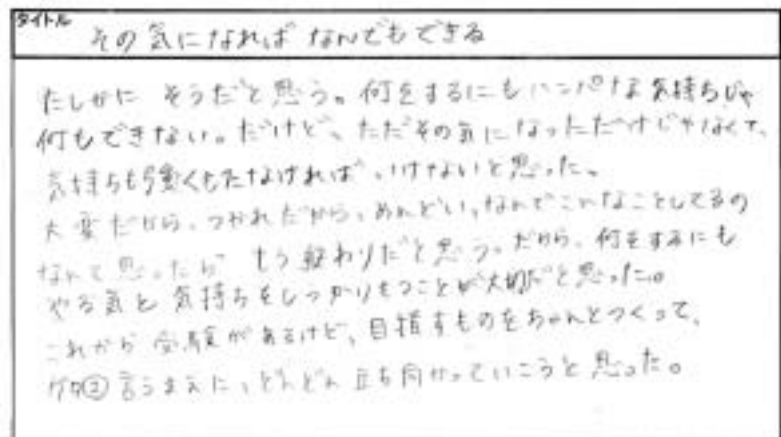 タイトル
その気になれば なんでもできる
たしかに そうだと思う。何をするにもハンパな気持ちじゃ
何もできない。だけど、ただその気になっただけじゃなくて、
気持ちも強くもたなければ、いけないと思った。
大変だから、つかれたから、めんどい、なんでこんなことしてるの
なんて思ったら もう終わりだと思う。だから、何をするにも
やる気と 気持ちをしっかりもつことが大切だと思った。
これから 受験があるけど、目指すものをちゃんとつくって、
グダ②言うまえに、どんどん立ち向かっていこうと思った。